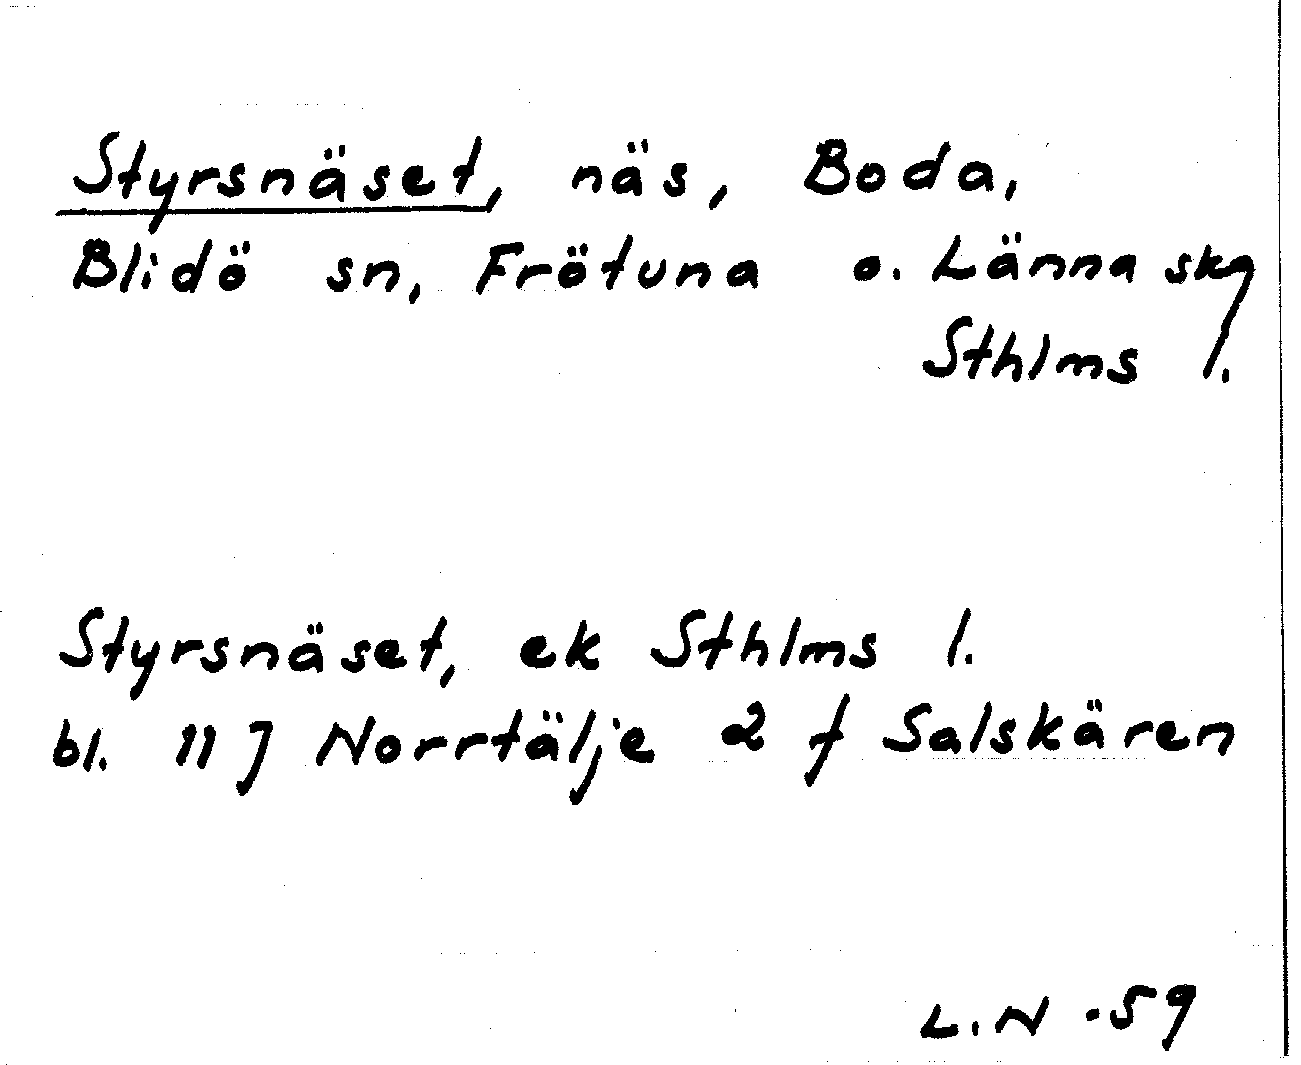 Styrsnäset, näs, Boda,
Blidö sn, Frötuna o. Länna skg
Sthlms l.
Styrsnäset, ek Sthlms l.
bl. 11 J Norrtälje 2 f Salskären
L.N -59